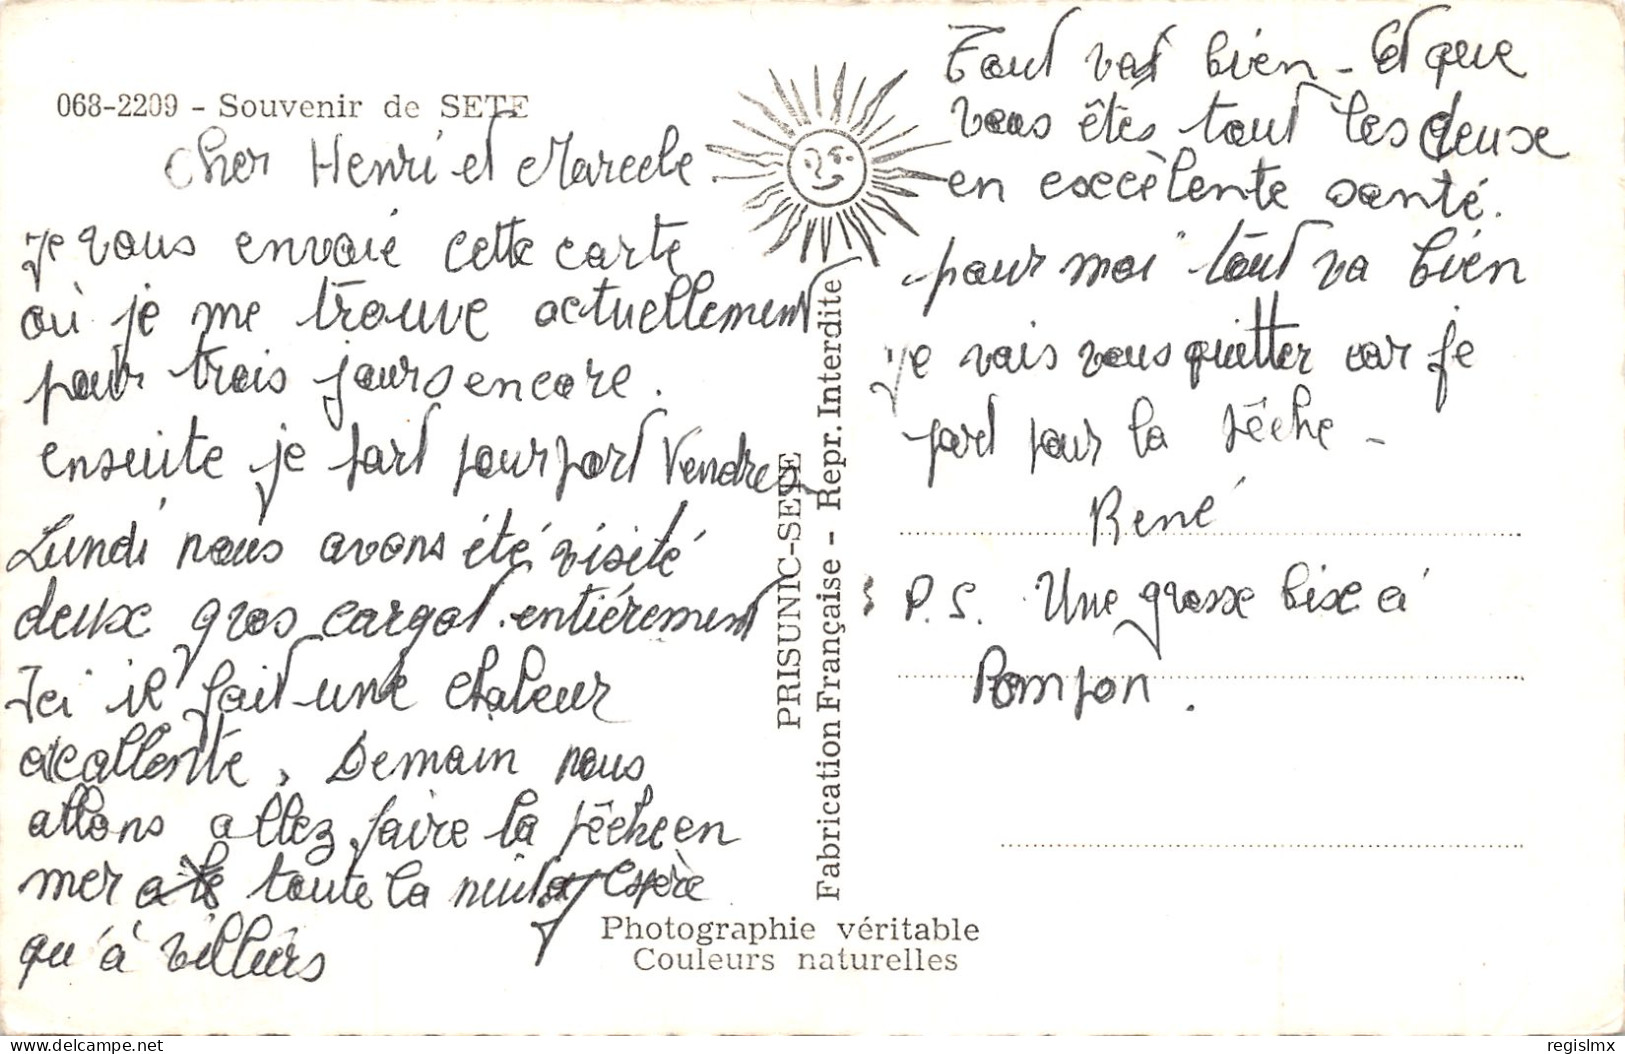 068-2209 - Souvenir de SETE
Cher Henri et Marcele.
je vous envoie cette carte
où je me trouve actuellement
pour trois jours encore.
ensuite je part pour port Vendres
Lundi nous avons été visité
deux gros cargot entiérement
Ici il fait une chaleur
excallente, Demain nous
allons allez faire la pêche en
mer toute la nuit espère
qu'à villiérs
Tout vat bien - Et que
vous êtes tout les deux
en excèlente santé.
pour moi tout va bien
je vais vous quitter car je
part pour la pêche -
René
P.S. Une grosse bise à
Pompon.
PRISUNIC-SETE
Fabrication Française - Repr. Interdite
Photographie véritable
Couleurs naturelles
delcampe.net
regislmx